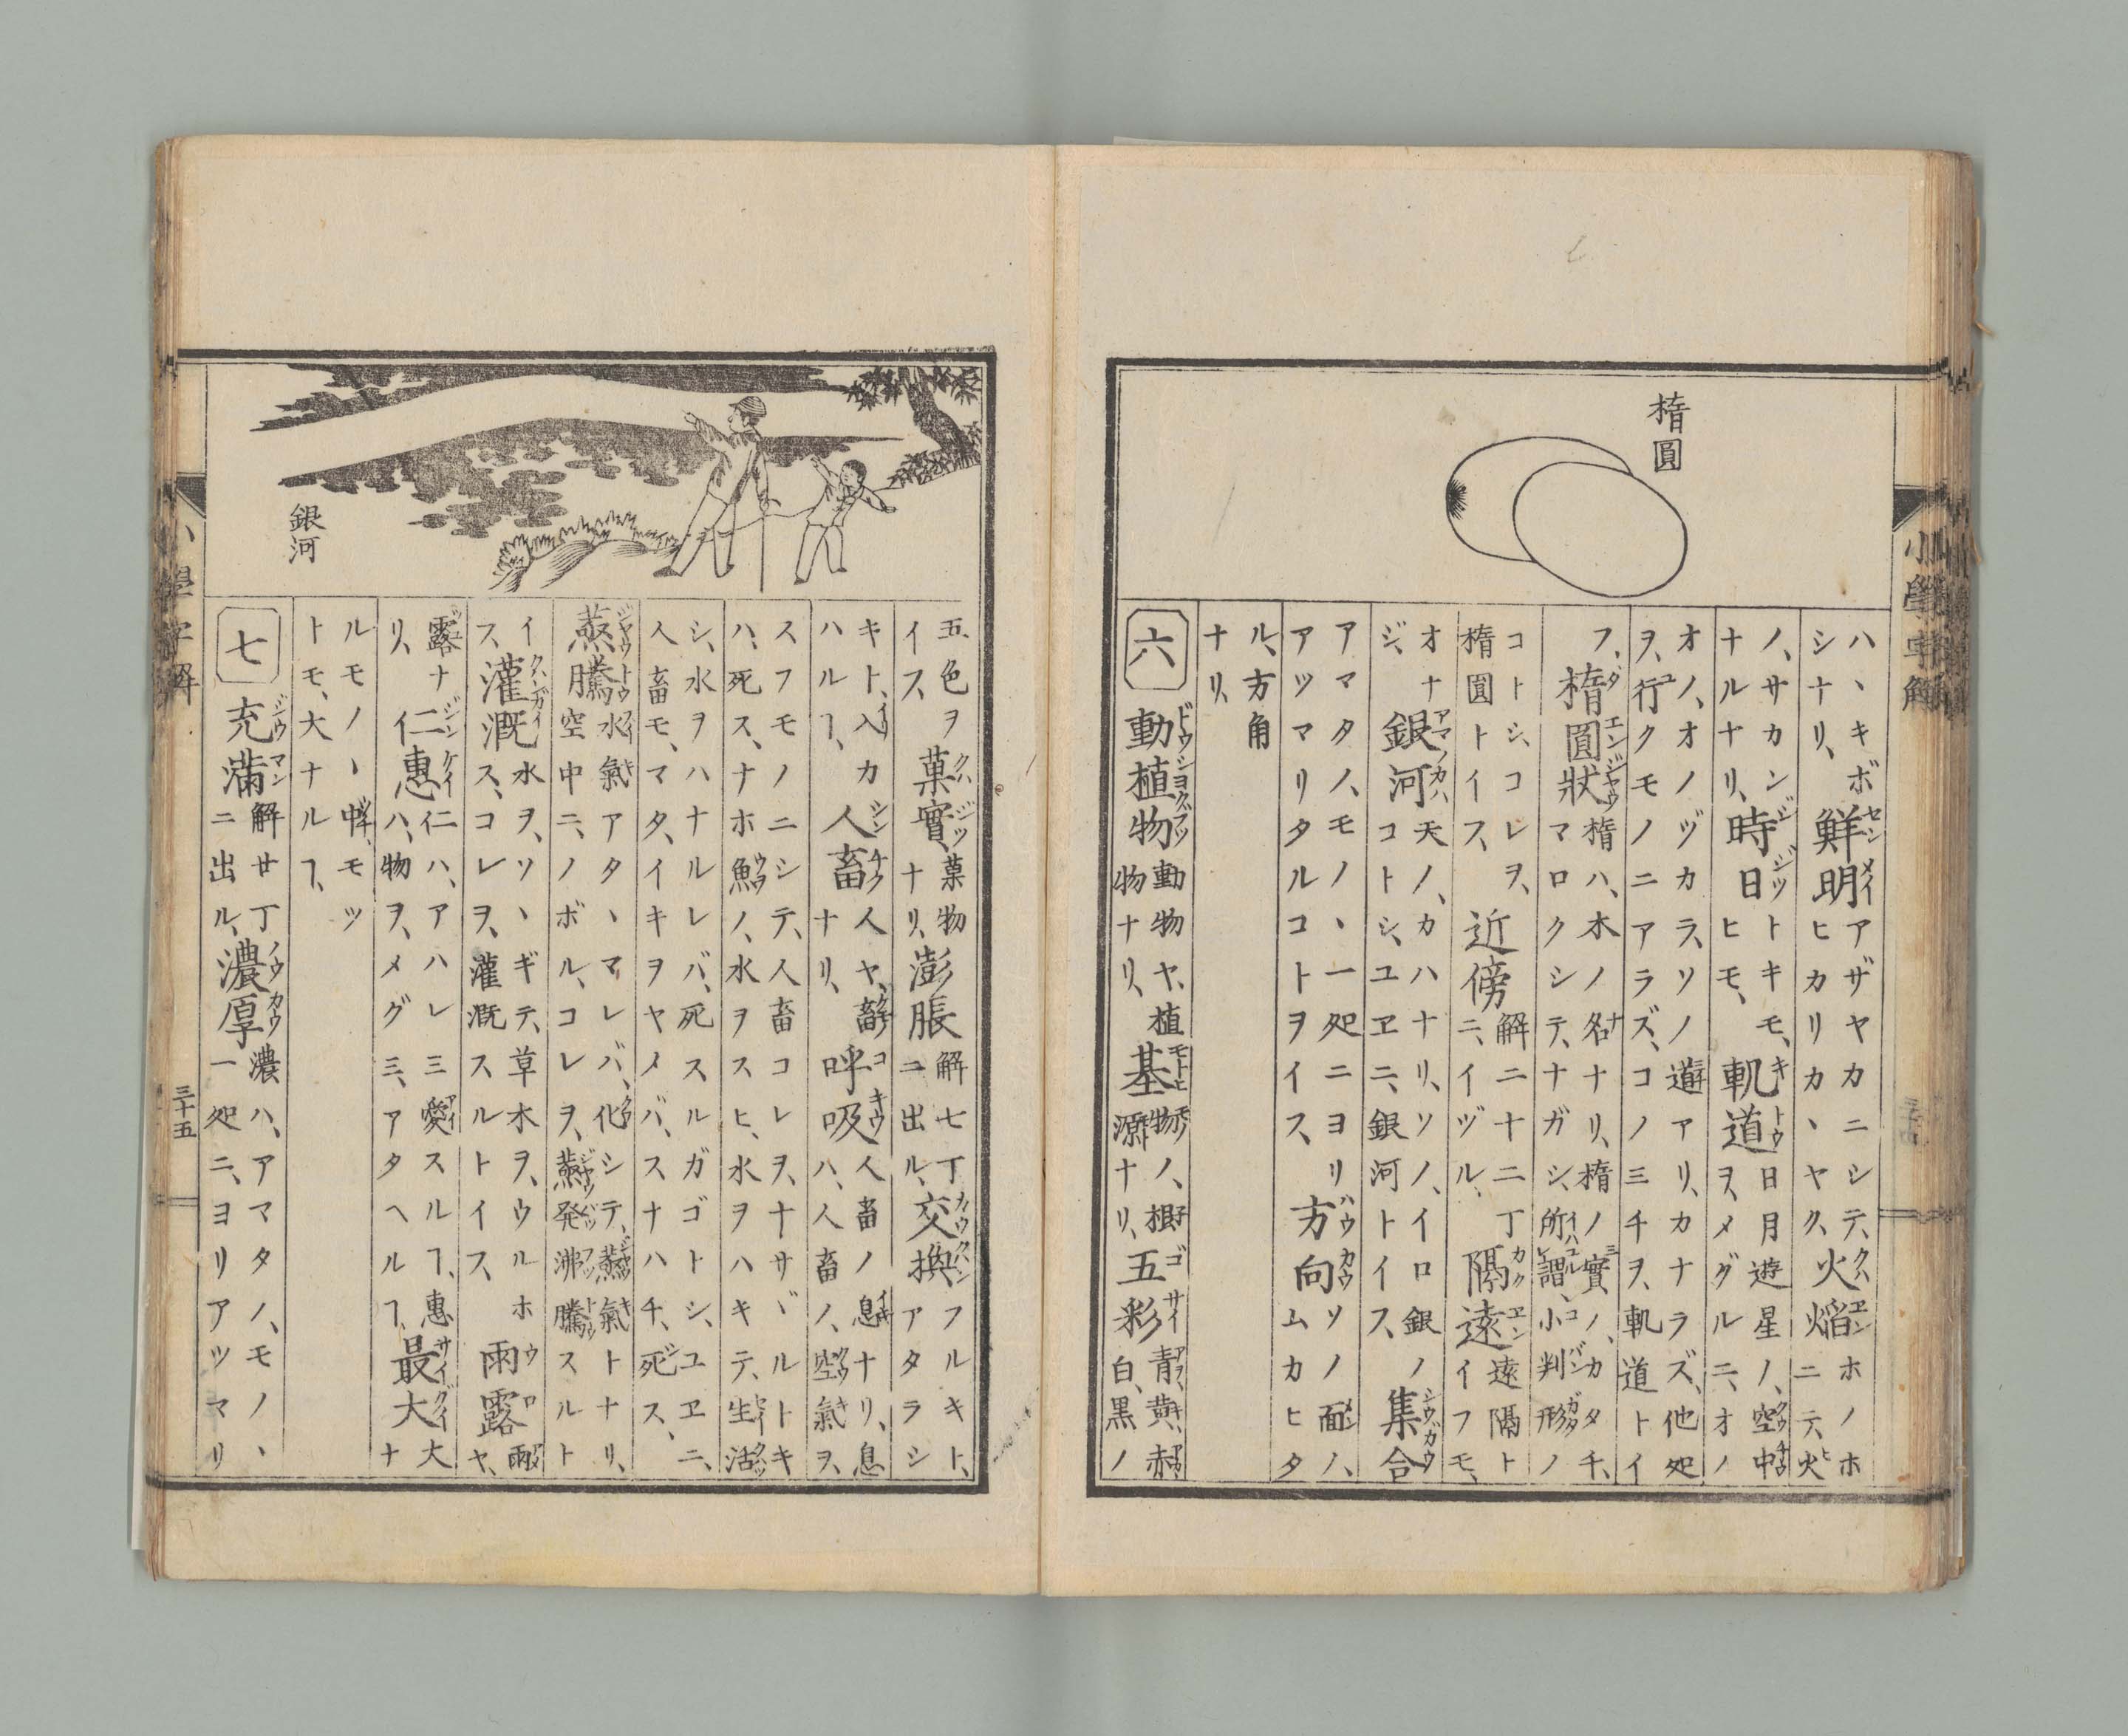 楕圓
ハヽキボシナリ、鮮明アザヤカニシテ、ヒカリカヽヤク、火焔ホノホニテ、火
ノ、サカンナルナリ、時日トキモ、ヒモ、軌道日月遊星ノ、空中ヲ、メグルニ、オノ
オノ、オノヅカラ、ソノ道アリ、カナラズ、他処ヲ、行クモノニアラズ、コノ三チヲ、軌道トイ
フ、楕圓狀楕ハ、木ノ名ナリ、楕ノ實ノ、カタチ、マロクシテ、ナガシ、所謂、小判形ノ
コトシ、コレヲ、楕圓トイス、近傍解二十二丁ニ、イヅル、隔遠遠隔トイフモ、
オナジ、銀河天ノ、カハナリ、ソノ、イロ銀ノコトシ、ユヱニ、銀河トイス、集合
アマタノ、モノヽ、一処ニヨリアツマリタルコトヲイス、方向ソノ面ノ、ムカヒタ
ル、方角ナリ、
六 動植物動物ヤ、植物ナリ、基物ノ、根源ナリ、五彩青、黄、赤白、黒ノ
銀河
五色ヲイス、菓實、菓物ナリ、澎脹解七丁ニ出ル、交換フルキト、アタラシ
キト、入カハルヿ、人畜人ヤ、畜ナリ、呼吸人畜ノ息ナリ、息ハ、人畜ノ、空氣ヲ、
スフモノニシテ、人畜コレヲ、ナサヾルトキハ、死ス、ナホ魚ノ、水ヲスヒ、水ヲハキテ、生活
シ、水ヲハナルレバ、死スルガゴトシ、ユヱニ、人畜モ、マタ、イキヲヤメバ、スナハチ、死ス、
蒸騰水氣アタヽマレバ、化シテ、蒸氣トナリ、空中ニ、ノボル、コレヲ、蒸発沸騰スルト
イス、灌漑水ヲ、ソヽギテ、草木ヲ、ウルホス、コレヲ、灌漑スルトイス、雨露雨ヤ、
露ナリ、仁惠仁ハ、アハレミ愛スルヿ、惠ハ、物ヲ、メグミ、アタヘルヿ、最大大ナ
ルモノヽ中、モットモ、大ナルヿ、
七 充滿解廿丁ニ出ル、濃厚濃ハ、アマタノ、モノヽ、一処ニ、ヨリアツマリ
小學字解
三十五